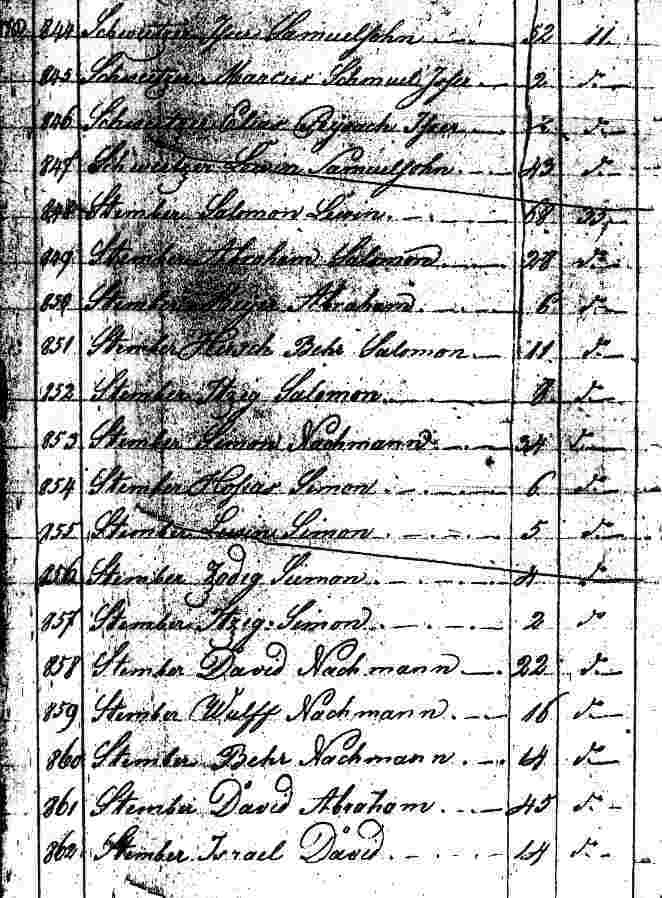 844 Schweitzer Isser Samuelsohn 52 11
845 Schweitzer Marcus Schmuel Isser 2 do
846 Schweitzer Elias Isser 2 do
847 Schweitzer Lewin Samuelsohn 43 do
848 Stember Salomon Lewin 68
849 Stember Abraham Salomon 28 do
850 Stember Meyer Abraham 6 do
851 Stember Hirsch Behr Salomon 11 do
852 Stember Itzig Salomon 8 do
853 Stember Simon Nachmann 34 do
854 Stember Hosias Simon 6 do
855 Stember Lewin Simon 5 do
856 Stember Zodig Siemon 4 do
857 Stember Itzig Simon 2 do
858 Stember David Nachmann 22 do
859 Stember Wulff Nachmann 16 do
860 Stember Behr Nachmann 14 do
861 Stember David Abraham 45 do
862 Stember Israel David 14 do